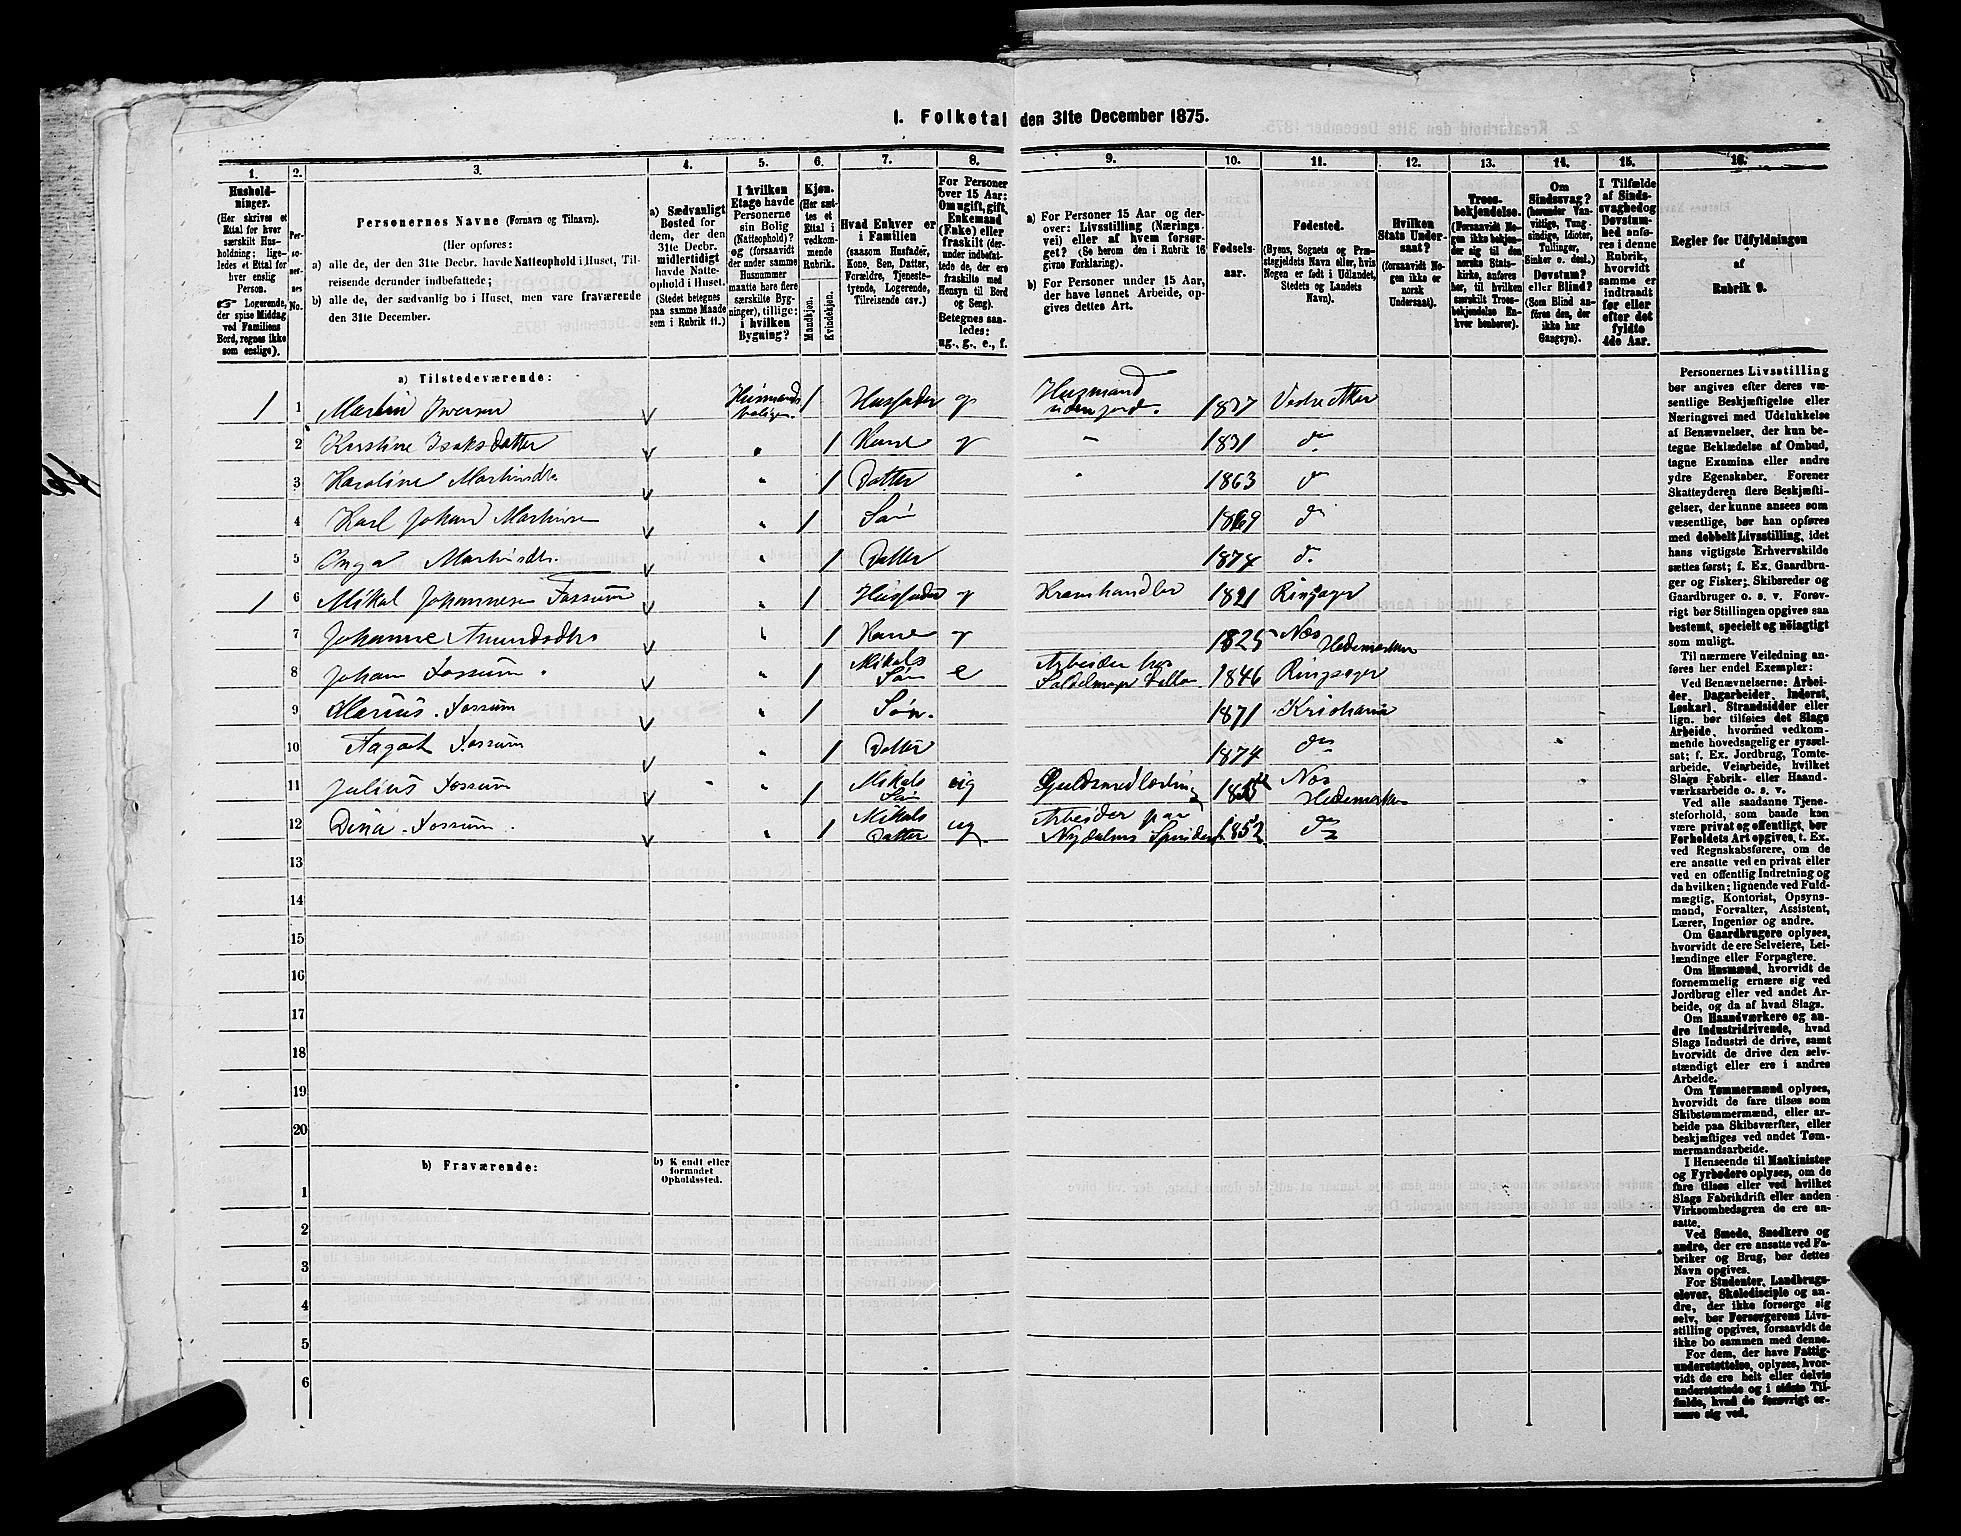 1. Folketal den 31te December 1875.
1. 2. 3. 4. 5. 6. 7. 8. 9. 10. 11. 12. 13. 14. 15. 16.
Hushold-
ninger.
(Her skrives et
Ettal for hver
særskilt Hus-
holdning; lige-
ledes et Ettal for
hver enslig
Person.
☞ Logerende,
der spise Middag
ved Familiens
Bord, regnes ikke
som enslige).
Per-
so-
ner-
nes
No.
Personernes Navne (Fornavn og Tilnavn).
(Her opføres:
a) alle de, der den 31te Decbr. havde Natteophold i Huset, Til-
reisende derunder indbefattede;
b) alle de, der sædvanlig bo i Huset, men vare fraværende
den 31te December.
a) Sædvanligt
Bosted for
dem, der den
31te Decbr.
midlertidigt
havde Natte-
ophold i Huset.
(Stedet betegnes
paa samme Maade
som i Rubrik 11.)
I hvilken
Etage havde
Personerne
sin Bolig
(Natteophold)?
og (forsaavidt
der under samme
Husnummer
maatte høre flere
særskilte Byg-
ninger), tillige:
i hvilken
Bygning?
Kjøn.
(Her sæt-
tes et
Ettal i
vedkom-
mende
Rubrik.
Mandkjøn.
Kvindekjøn.
Hvad Enhver er
i Familien
(saasom Husfader,
Kone, Søn, Datter,
Forældre, Tjeneste-
tyende, Logerende,
Tilreisende osv.)
For Personer
over 15 Aar:
Om ugift, gift,
Enkemand
(Enke) eller
fraskilt (der-
under indbefat-
tede de, der ere
fraskilte med
Hensyn til Bord
og Seng).
Betegnes saa-
ledes:
ug., g., e., f.
a) For Personer 15 Aar og der-
over: Livsstilling (Nærings-
vei) eller af hvem forsør-
get. (Se herom den i Rubrik 16
givne Forklaring).
b) For Personer under 15 Aar,
der have lønnet Arbeide, op-
gives dettes Art.
Fødsels-
aar.
Fødested.
(Byens, Sognets og Præ-
stegjeldets Navn eller, hvis
Nogen er født i Udlandet,
Stedets og Landets
Navn).
Hvilken
Stats Under-
saat?
(forsaavidt No-
gen ikke er
norsk
Undersaat).
Troes-
bekjendelse.
(Forsaavidt No-
gen ikke bekjen-
der sig til den
norske Stats-
kirke, anføres
her, til hvilken
særskilt Troes-
bekjendelse En-
hver henhører).
Om
Sindssvag?
(herunder Van-
vittige, Tung-
sindige, Idioter,
Tullinger,
Sinker o. desl.)
Døvstum?
eller Blind?
(Som Blind an-
føres den, der
ikke har
Gangsyn).
I Tilfælde
af Sinds-
svaghed og
Døvstum-
hed anfø-
res i denne
Rubrik,
hvorvidt
samme er
indtraadt
før eller
efter det
fyldte
4de Aar.
Regler for Udfyldningen
af
Rubrik 9.
a) Tilstedeværende:
1 1 Martin Iversen Husmands bolig 1 Husfader g Husmand uden jord. 1837 Vestre Aker
2 Kirstine Isaksdatter " 1 Kone g " 1831 do
3 Karoline Martinsdtr " 1 Datter " 1863 do
4 Karl Johan Martinsen " 1 Søn 1869 do
5 Inga Martinsdtr. " 1 Datter 1874 do
1 6 Mikal Johannesen Fossum " 1 Husfader g Kramhandler 1821 Ringsager
7 Johanne Amundsdtr " 1 Kone g 1825 Næs Hedemarken
8 Johan Fossum " 1 Mikals Søn e Arbeider hos 1846 Ringsager
9 Marius Fossum " 1 Søn. 1871 Kristiania
10 Fossum " 1 Datter 1874 do
11 Julius Fossum " " 1 Mikals Søn ug Guldsmedlærling Næs Hedemarken
12 Dina Fossum " 1 Mikals Datter ug Arbeider paa Nydalens Spinderi 1852 do
13
14
15
16
17
18
19
20
b) Fraværende:
b) Kjendt eller
formodet
Opholdssted.
1
2
3
4
5
6
Personernes Livsstilling
bør angives efter deres væ-
sentlige Beskjæftigelse eller
Næringsvei med Udelukkelse
af Benævnelser, der kun be-
tegne Beklædelse af Ombud,
tagne Examina eller andre
ydre Egenskaber. Forener
Skatteyderen flere Beskjæfti-
gelser, der kunne ansees som
væsentlige, bør han opføres
med dobbelt Livsstilling, idet
hans vigtigste Erhvervskilde
sættes først; f. Ex. Gaardbru-
ger og Fisker; Skibsreder og
Gaardbruger o. s. v. Forøv-
rigt bør Stillingen opgives saa
bestemt, specielt og nøiagtigt
som muligt.
Til nærmere Veiledning an-
føres her endel Exempler:
Ved Benævnelserne: Arbei-
der, Dagarbeider, Inderst,
Løskarl, Strandsidder eller
lign. bør tilføies det Slags
Arbeide, hvormed vedkom-
mende hovedsagelig er syssel-
sat; f. Ex. Jordbrug, Tomte-
arbeide, Veiarbeide, hvilket
Slags Fabrik- eller Haand-
værksarbeide o. s. v.
Ved alle saadanne Tjene-
steforhold, som baade kan
være privat og offentligt, bør
Forholdets Art opgives, t. Ex.
ved Regnskabsførere, om de
ere ansatte ved en privat eller
ved en offentlig Indretning og
da hvilken; lignende ved Fuld-
mægtig, Kontorist, Opsyns-
mand, Forvalter, Assistent,
Lærer, Ingeniør og andre.
Om Gaardbrugere oplyses,
hvorvidt de ere Selveiere, Lei-
lændinge eller Forpagtere.
Om Husmænd, hvorvidt de
fornemmelig ernære sig ved
Jordbrug eller ved andet Ar-
beide, og da af hvad Slags.
Om Haandværkere og an-
dre Industridrivende, hvad
Slags Industri de drive, samt
hvorvidt de drive den selv-
stændigt eller ere i andres
Arbeide.
Om Tømmermænd oplyses,
hvorvidt de fare tilsøs som
Skibstømmermænd, eller ar-
beide paa Skibsværfter, eller
beskjæftiges ved andet Tøm-
mermandsarbeide.
I Henseende til Maskinister
og Fyrbødere oplyses, om de
fare tilsøs eller ved hvilket
Slags Fabrikdrift eller anden
Virksomhedsgren de ere an-
satte.
Ved Smede, Snedkere og
andre, der ere ansatte ved Fa-
briker og Brug, bør dettes
Navn opgives.
For Studenter, Landbrugs-
elever, Skoledisciple og an-
dre, der ikke forsørge sig
selv, bør Forsørgerens Livs-
stilling opgives, forsaavidt de
ikke bo sammen med denne.
For dem, der have Fattig-
understøttelse, oplyses, hvor-
vidt de ere helt eller delvis
understøttede og i sidste Til-
fælde, hvad de forøvrigt er-
nære sig ved.